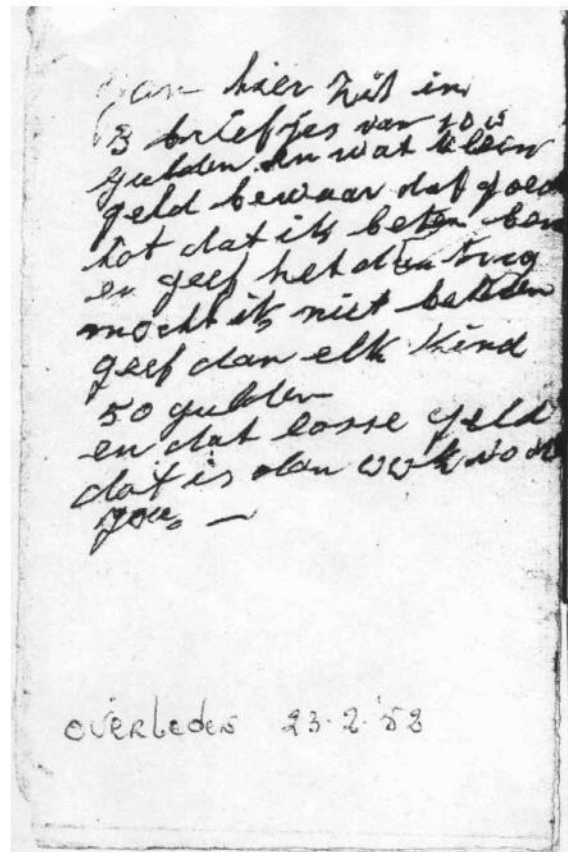 Jan hier zit in
3 briefjes van 100
gulden en wat klein
geld bewaar dat goed
tot dat ik beter ben
en geef het dan trug
mocht ik niet beteren
geef dan elk kind
50 gulden
en dat losse geld
dat is dan ook voor
jou. —
overleden 23-2-'58